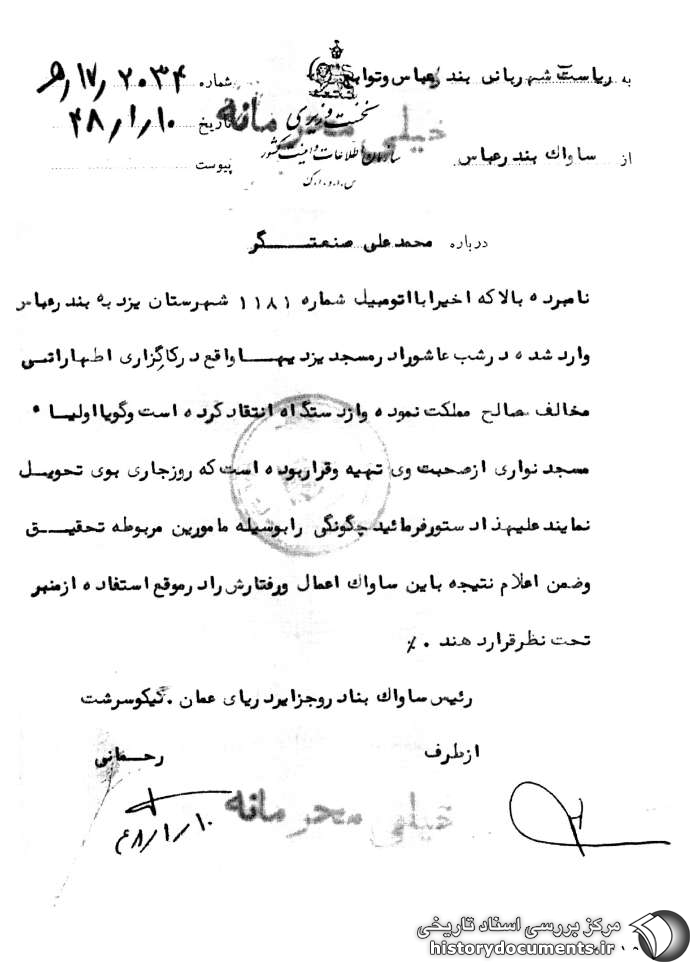 به ریاست شهربانی بندرعباس وتوابع
شماره ۲۰۳۴ / ۱۷ / ه
خیلی محرمانه
نخست وزیری
تاریخ ۴۸/۱/۱۰
از ساواک بندرعباس
سازمان اطلاعات و امنیت کشور
پیوست
س.ا.و.ا.ک
درباره محمدعلی صنعتگر
نامبرده بالاکه اخیرابااتومبیل شماره ۱۱۸۱ شهرستان یزد به بندرعباس
وارد شده درشب عاشورادرمسجد یزدیهـا واقع درکارگزاری اظهاراتی
مخالف مصالح مملکت نموده وازدستگاه انتقادکرده است وگویااولیاء
مسجد نواری ازصحبت وی تهیه وقراربوده است که روزجاری بوی تحویل
نمایند علیهذا دستورفرمائید چگونگی رابوسیله مامورین مربوطه تحقیق
وضمن اعلام نتیجه باین ساواک اعمال ورفتارش رادرموقع استفاده ازمنبر
تحت نظرقراردهند ./
رئیس ساواک بنادروجزایردریای عمان . نیکوسرشت
ازطرف رحمانی
خیلی محرمانه
۴۸/۱/۱۰
مرکز بررسی اسناد تاریخی
historydocuments.ir